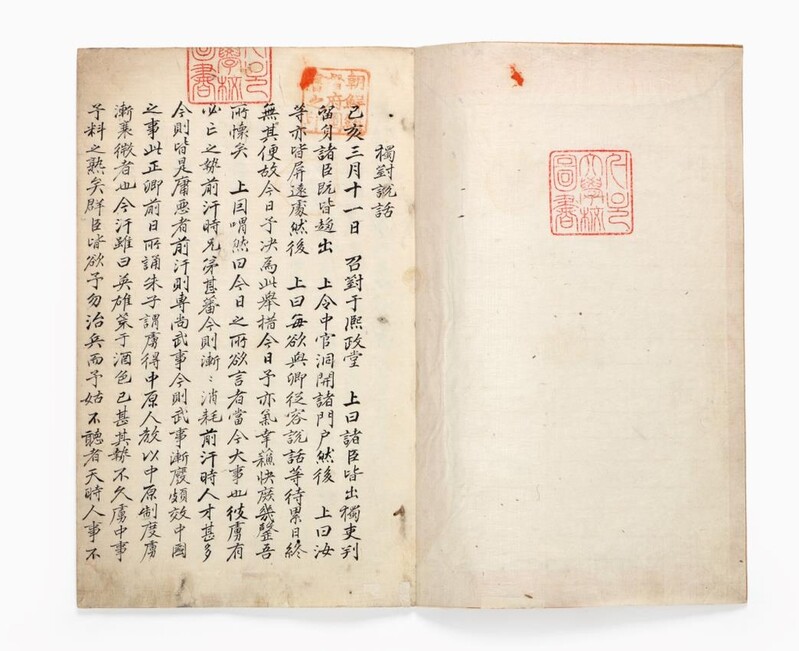 獨對說話
己亥三月十一日 召對于熙政堂 上曰諸臣皆出獨吏判
留身諸臣旣皆趨出 上令中官洞開諸門戶然後 上曰汝
等亦皆屛遠處然後 上曰每欲與卿從容說話等待累日終
無其便故今日予決爲此擧措今日予亦氣幸蘇快庶幾罄吾
所懷矣 上因喟然曰今日之所欲言者當今大事也彼虜有
必亡之勢前汗時兄弟甚蕃今則漸〻消耗前汗時人才甚多
今則皆是庸惡者前汗則專尙武事今則武事漸廢頗效中國
之事此正卿前日所誦朱子謂虜得中原人敎以中原制度虜
漸衰微者也今汗雖曰英雄荒于酒色已甚其勢不久虜中事
予料之熟矣群臣皆欲予勿治兵而予姑不聽者天時人事不
서울
大學校
圖書